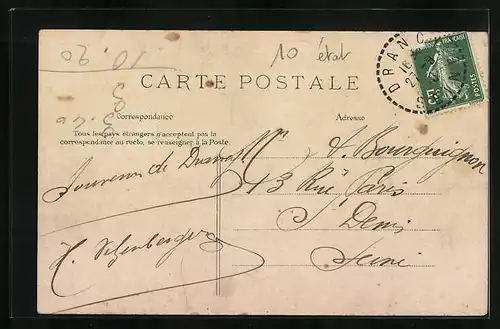 10 état
10.20
CARTE POSTALE
Correspondance
Adresse
Tous les pays étrangers n'acceptent pas la
correspondance au recto, se renseigner à la Poste.
Souvenir de
A. Bourguignon
13 Rue Paris
St Denis
Seine
DRANCY
5c
POSTES